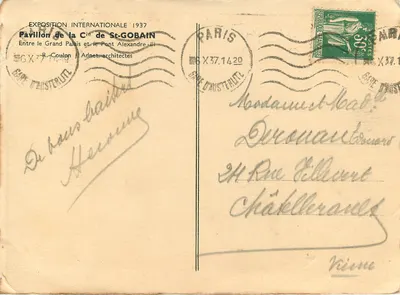 EXPOSITION INTERNATIONALE 1937
Pavillon de la Cie de St-GOBAIN
Entre le Grand Palais et le Pont Alexandre III
R. Coulon J. Adnet, architectes
PARIS
6 X 37. 14 20
GARE D'AUSTERLITZ
X 37. 14 20
GARE D'AUSTERLITZ
50c
De bons baisers
Madame et Mlle
24 Rue Villevert
Châtellerault
Vienne